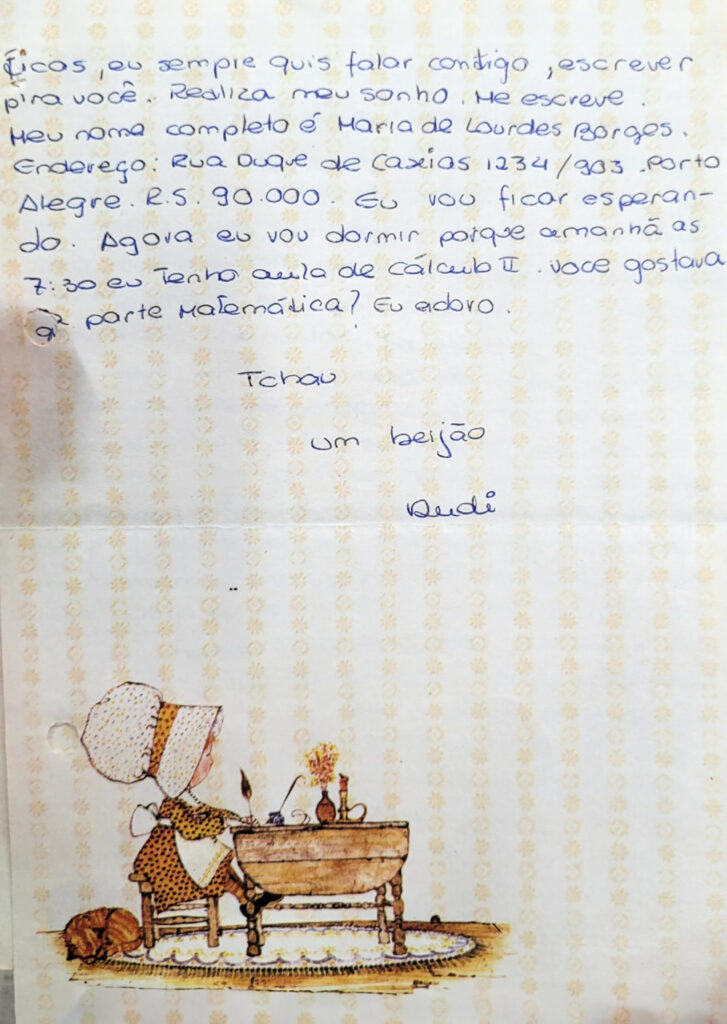 Ficas, eu sempre quis falar contigo, escrever
pra você. Realiza meu sonho. Me escreve.
Meu nome completo é Maria de Lourdes Borges.
Endereço: Rua Duque de Caxias 1234/903. Porto
Alegre. R.S. 90.000. Eu vou ficar esperan-
do. Agora eu vou dormir porque amanhã as
7:30 eu tenho aula de cálculo II. Voce gostava
parte Matemática? Eu adoro.
Tchau
um beijão
Dudi